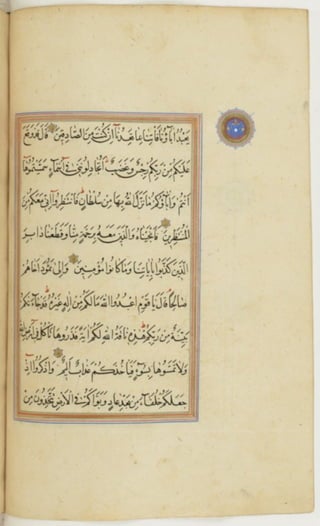 يَعْبُدُ اٰبَاؤُنَا فَأْتِنَا بِمَا تَعِدُنَا اِنْ كُنْتَ مِنَ الصَّادِقِينَ قَالَ قَدْ وَقَعَ
عَلَيْكُمْ مِنْ رَبِّكُمْ رِجْسٌ وَغَضَبٌ اَتُجَادِلُونَنِي فِي اَسْمَاءٍ سَمَّيْتُمُوهَا
اَنْتُمْ وَاٰبَاؤُكُمْ مَا نَزَّلَ اللّٰهُ بِهَا مِنْ سُلْطَانٍ فَانْتَظِرُوا اِنِّي مَعَكُمْ مِنَ
الْمُنْتَظِرِينَ فَاَنْجَيْنَاهُ وَالَّذِينَ مَعَهُ بِرَحْمَةٍ مِنَّا وَقَطَعْنَا دَابِرَ
الَّذِينَ كَذَّبُوا بِاٰيَاتِنَا وَمَا كَانُوا مُؤْمِنِينَ وَاِلٰى ثَمُودَ اَخَاهُمْ
صَالِحًا قَالَ يَا قَوْمِ اعْبُدُوا اللّٰهَ مَا لَكُمْ مِنْ اِلٰهٍ غَيْرُهُ قَدْ جَاءَتْكُمْ
بَيِّنَةٌ مِنْ رَبِّكُمْ هٰذِهِ نَاقَةُ اللّٰهِ لَكُمْ اٰيَةً فَذَرُوهَا تَأْكُلْ فِي اَرْضِ اللّٰهِ
وَلَا تَمَسُّوهَا بِسُوءٍ فَيَأْخُذَكُمْ عَذَابٌ اَلِيمٌ وَاذْكُرُوا اِذْ
جَعَلَكُمْ خُلَفَاءَ مِنْ بَعْدِ عَادٍ وَبَوَّاَكُمْ فِي الْاَرْضِ تَتَّخِذُونَ مِنْ